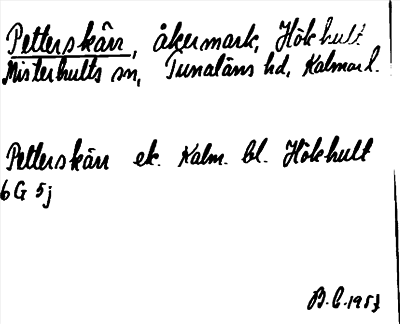 Petterskärr, åkermark, Hökhult
Misterhults sn, Tunaläns hd, Kalmar l.
Petterskärr ek. Kalm. bl. Hökhult
6G 5j